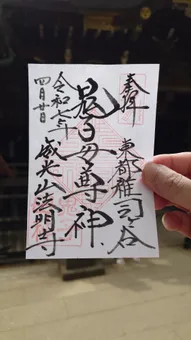 奉拝
東都雜司ヶ谷
鬼子母尊神
令和七年
四月廿日
威光山法明寺